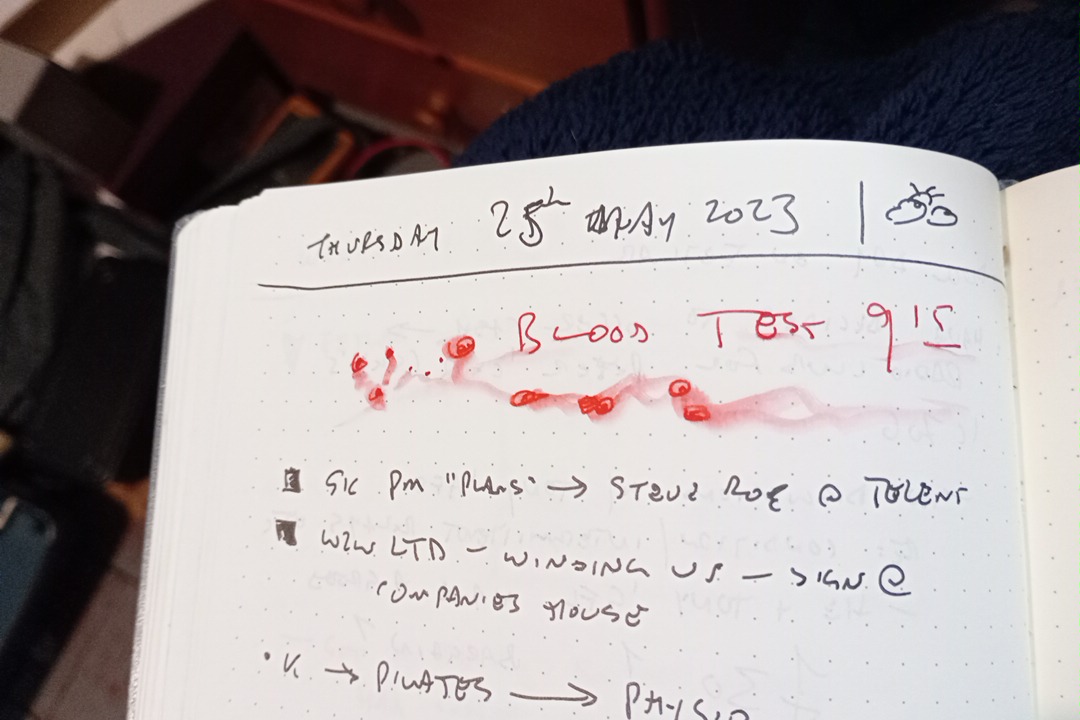 THURSDAY 25th MAY 2023
BLOOD TEST 915
PM "PLANS" → STEVE ROE @ TELENT
W2W LTD - WINDING UP - SIGN @
COMPANIES HOUSE
K → PILATES → PHYSIO